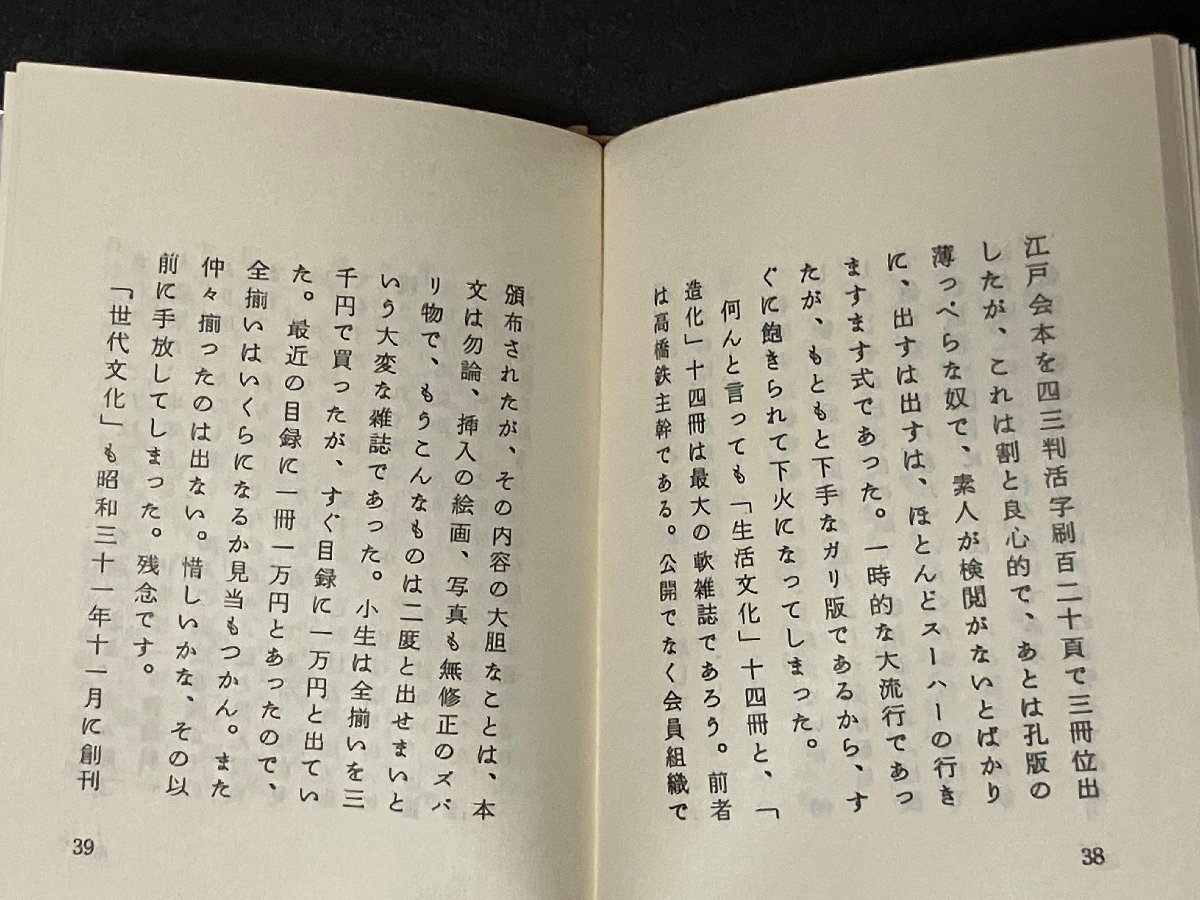 江戸会本を四三判活字刷百二十頁で三冊位出
したが、これは割と良心的で、あとは孔版の
薄っぺらな奴で、素人が検閲がないとばかり
に、出すは出すは、ほとんどスーハーの行き
ますます式であった。一時的な大流行であっ
たが、もともと下手なガリ版であるから、す
ぐに飽きられて下火になってしまった。
何んと言っても「生活文化」十四冊と、「
造化」十四冊は最大の軟雑誌であろう。前者
は高橋鉄主幹である。公開でなく会員組織で
38
頒布されたが、その内容の大胆なことは、本
文は勿論、挿入の絵画、写真も無修正のズバ
リ物で、もうこんなものは二度と出せまいと
いう大変な雑誌であった。小生は全揃いを三
千円で買ったが、すぐ目録に一万円と出てい
た。最近の目録に一冊一万円とあったので、
全揃いはいくらになるか見当もつかん。また
仲々揃ったのは出ない。惜しいかな、その以
前に手放してしまった。残念です。
「世代文化」も昭和三十一年十一月に創刊
39